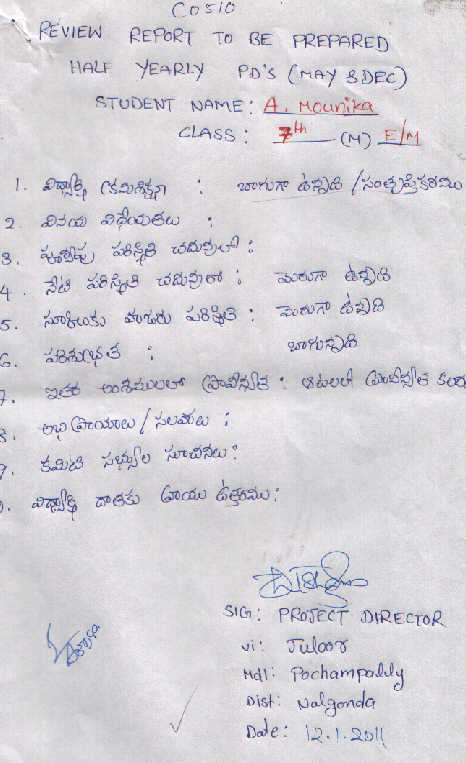 CO510
REVIEW REPORT TO BE PREPARED
HALF YEARLY PD'S (MAY & DEC)
STUDENT NAME: A. Mounika
CLASS: 7th (M) E/M
1. విద్యార్థి క్రమశిక్షణ : బాగుగా ఉన్నది / సంతృప్తికరము
2. వినయ విధేయతలు :
3. పూర్వపు పరిస్థితి చదువులో :
4. నేటి పరిస్థితి చదువులో : మెరుగా ఉన్నది
5. స్కూలుకు హాజరు పరిస్థితి : మెరుగా ఉన్నది
6. పరిశుభ్రత : బాగున్నది
7. ఇతర అంశములలో ప్రావీణ్యత : ఆటలలో ప్రావీణ్యత
8. అభిప్రాయాలు / సలహాలు :
9. కమిటి సభ్యుల సూచనలు :
విద్యార్థి దాతకు వ్రాయు ఉత్తరము :
SIG: PROJECT DIRECTOR
vi: Juloor
Mdl: Pochampally
Dist: Nalgonda
Date: 12.1.2011